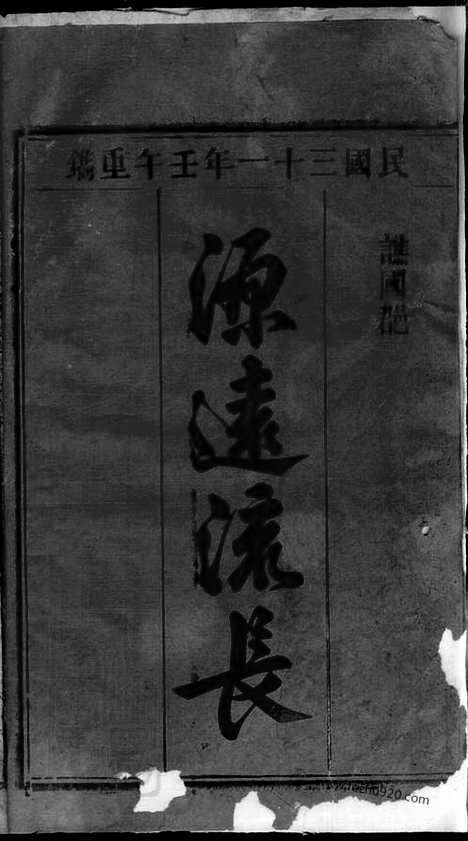 民國三十一年壬午重鐫
譙國郡
源遠流長
www.jiachu920.com